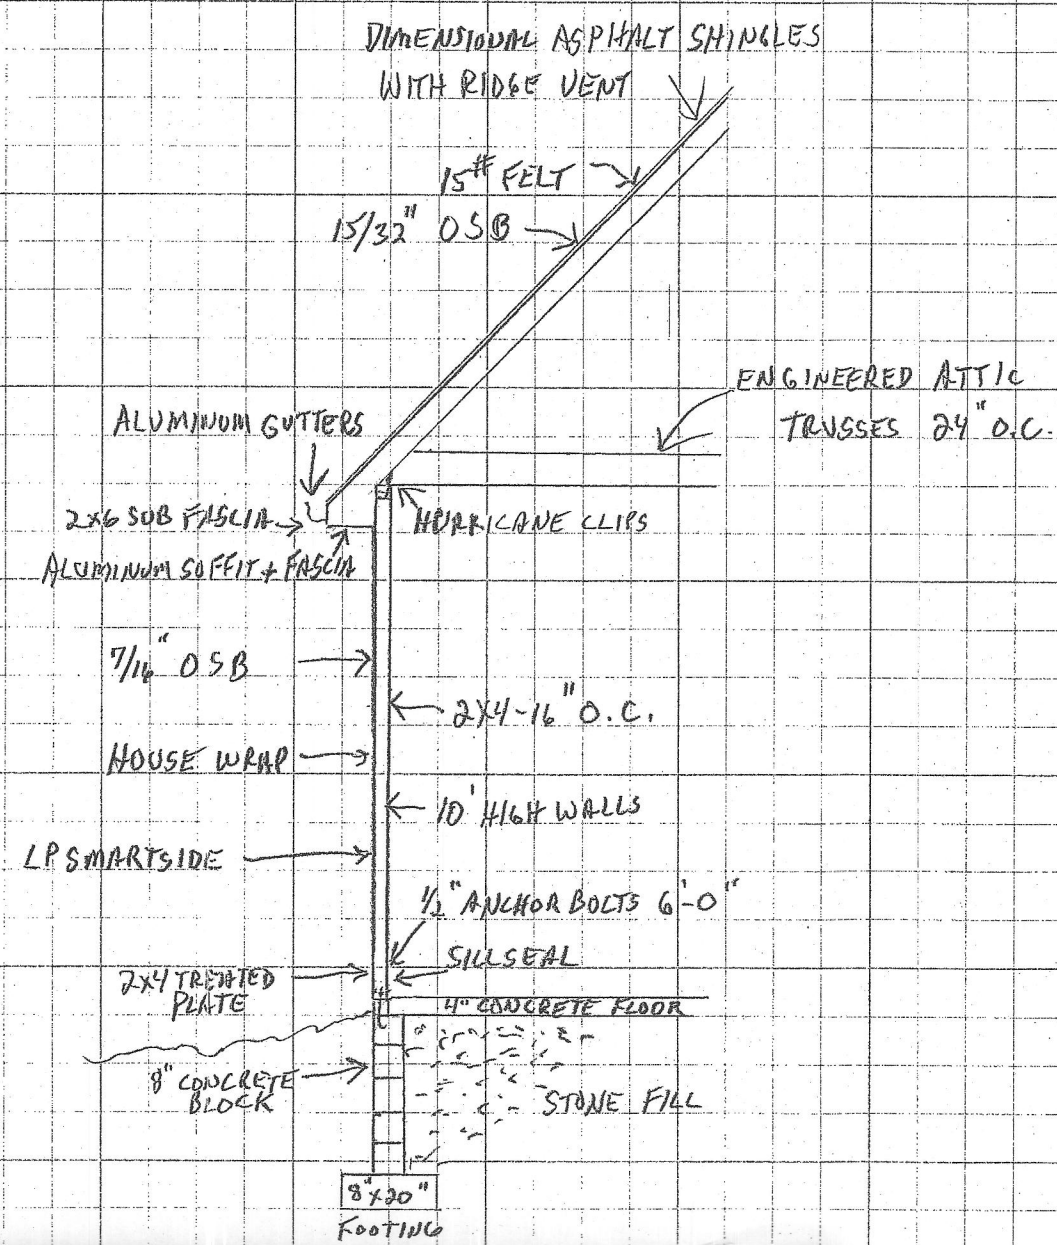 DIMENSIONAL ASPHALT SHINGLES
WITH RIDGE VENT
15# FELT
15/32" OSB
ENGINEERED ATTIC
TRUSSES 24" O.C.
ALUMINUM GUTTERS
2x6 SUB FASCIA
HURRICANE CLIPS
ALUMINUM SOFFIT + FASCIA
7/16" OSB
2x4-16" O.C.
HOUSE WRAP
10' HIGH WALLS
LP SMARTSIDE
1/2" ANCHOR BOLTS 6'-0"
SILLSEAL
2x4 TREATED
PLATE
4" CONCRETE FLOOR
8" CONCRETE
BLOCK
STONE FILL
8"x20"
FOOTING